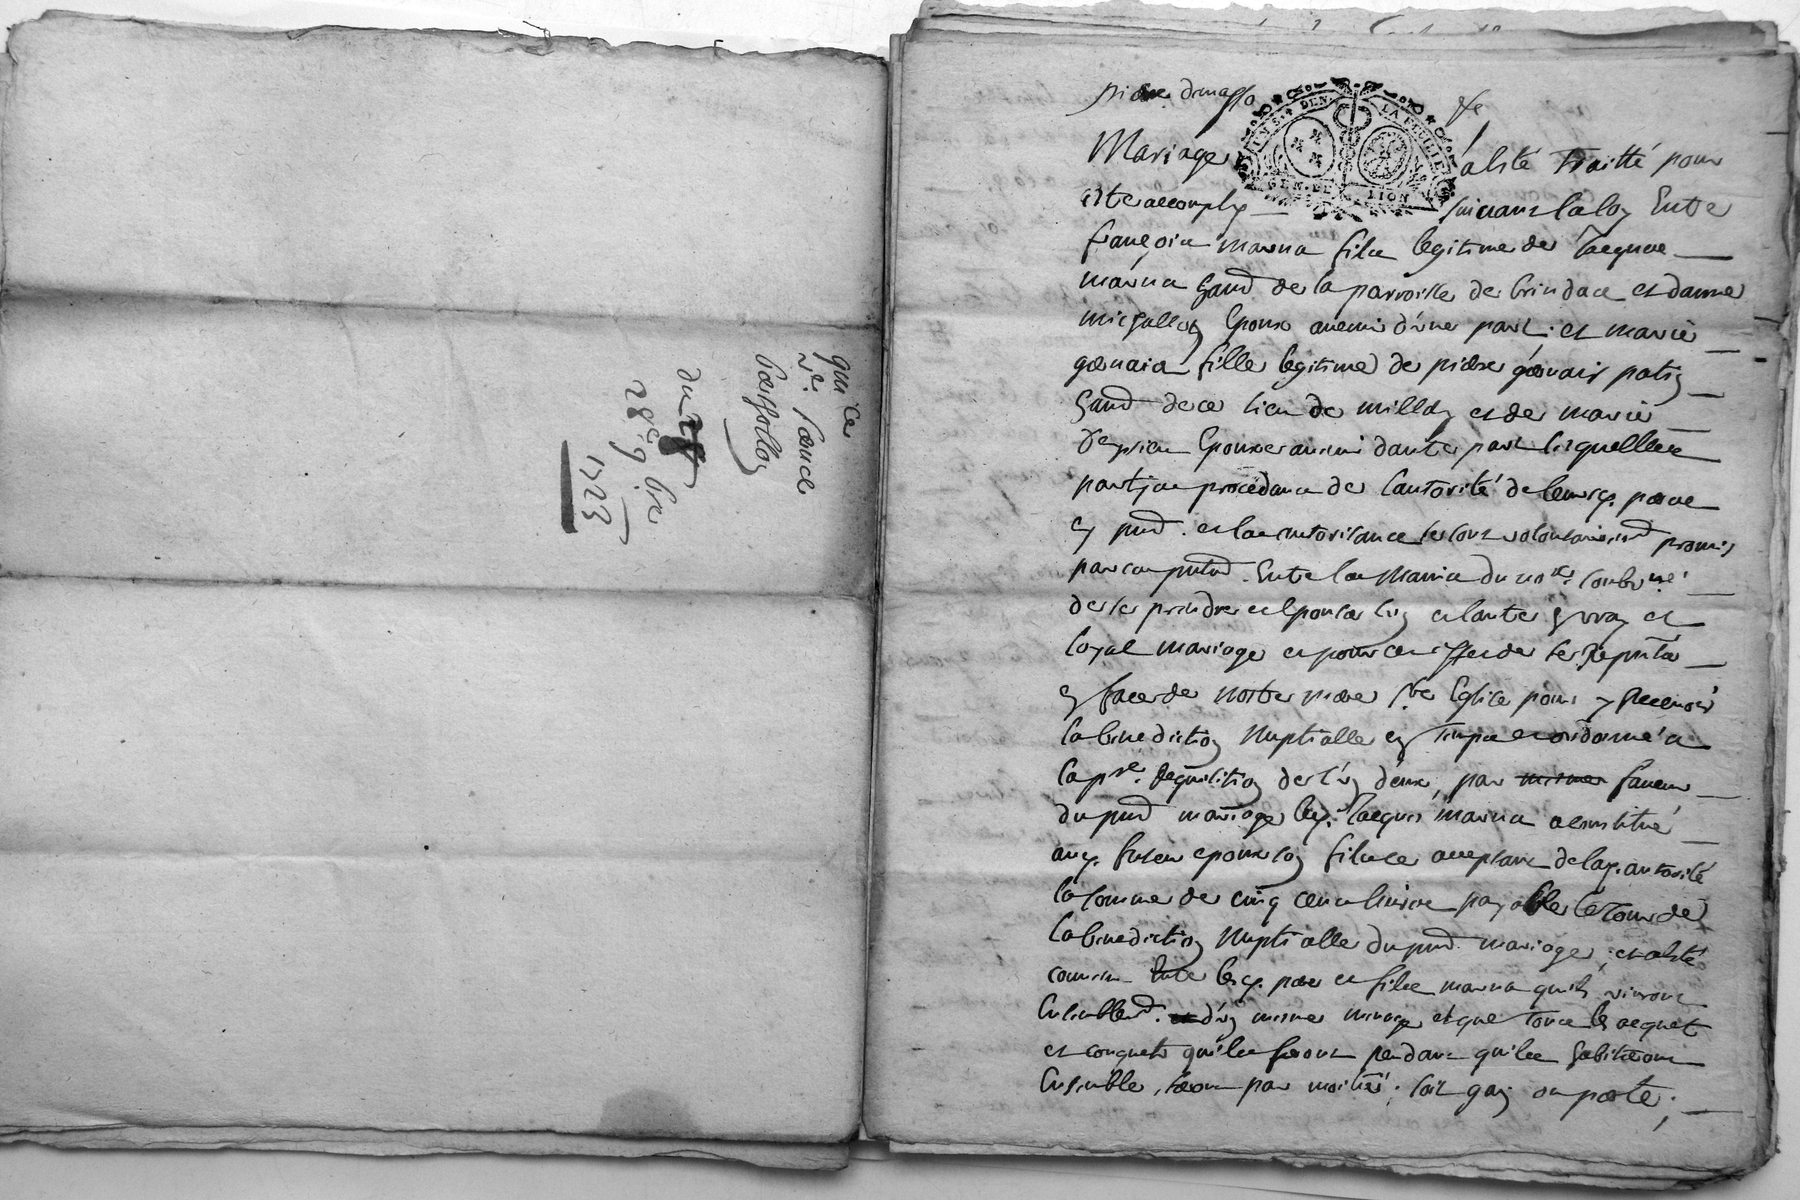 qui ce
du 28
28e 9bre
1723
DEN LA FEUILLE
GEN. DE LION
Mariage a lsté Traitté pour
estre accomply suivant la loy Entre
françois marna fils legitime de Jacques
marna hand de la parroisse de brindas et danne
Epoux avenir d'une part, et marie
gervais fille legitime de pierre gervais
hand de ce lieu de millery et de marie
Epouse avenir dautre part lesquelles
parties procedans de lautorité de leursd. peres
cy pnt. et les autorisants se sont volontairemt promis
par ces pntes. Entre les Mains du nore. soubsné.
de se prendre et Epouser lun et lautre en vray et
loyal mariage et pour cet effet de se Repnter
en face de nostre mere Ste Eglise pour y Recevoir
la benediction Nuptialle en Temps et ordonné a
la pre. Requisition de l'un deux, par mesmes faveur
du pnt mariage led. Jacques marna a constitué
aud. futeur epoux son fils ce acceptant de lad. autorité
la somme de cinq cents livres payable le Jour de
la benediction Nuptialle du pnt mariage, et a lsté
convenu Entre lesd. pere et fils marna quils vivront
Ensemblemt. d'un mesme menage et que tous les acquets
et conquets quils feront pendant quils habiteront
Ensemble, seront par moitié, soit gain ou perte,